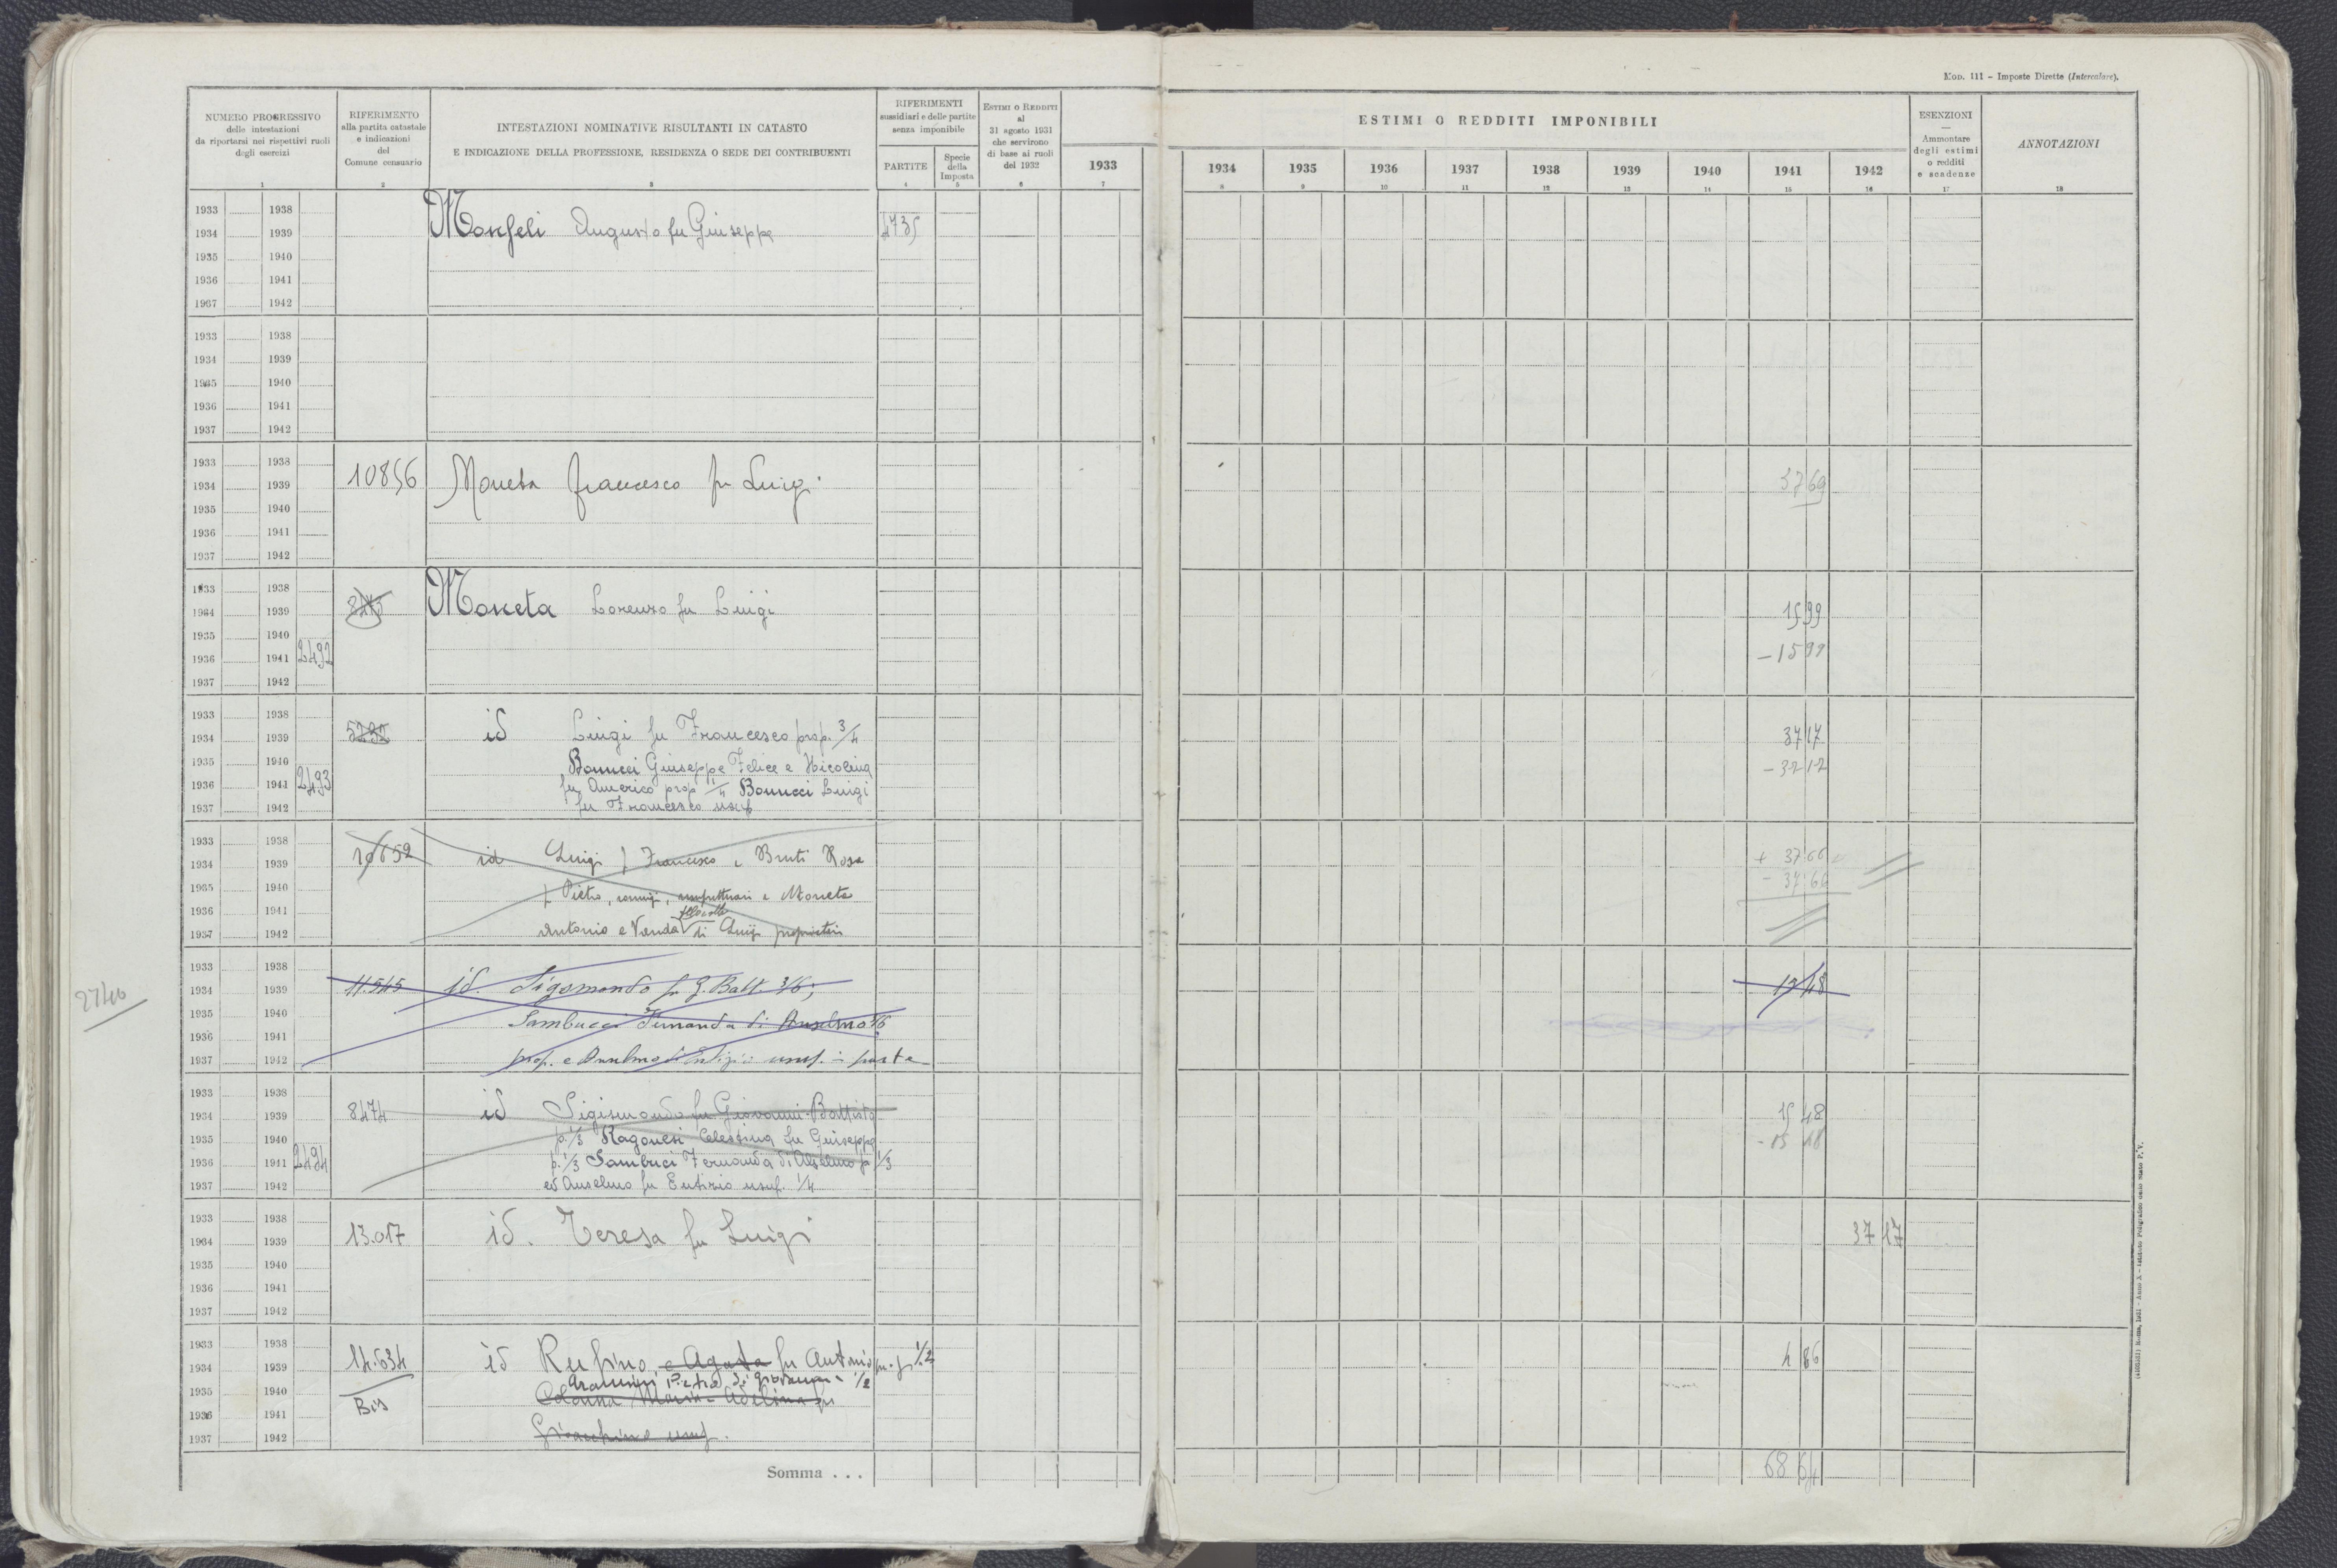 Mod. 111 - Imposte Dirette (Intercalare).
NUMERO PROGRESSIVO
delle intestazioni
da riportarsi nei rispettivi ruoli
degli esercizi
1
RIFERIMENTO
alla partita catastale
e indicazioni
del
Comune censuario
2
INTESTAZIONI NOMINATIVE RISULTANTI IN CATASTO
E INDICAZIONE DELLA PROFESSIONE, RESIDENZA O SEDE DEI CONTRIBUENTI
3
RIFERIMENTI
sussidiari e delle partite
senza imponibile
PARTITE
4
Specie
della
Imposta
5
ESTIMI O REDDITI
al
31 agosto 1931
che servirono
di base ai ruoli
del 1932
6
ESTIMI O REDDITI IMPONIBILI
1933 1934 1935 1936 1937 1938 1939 1940 1941 1942
7 8 9 10 11 12 13 14 15 16
ESENZIONI
Ammontare
degli estimi
o redditi
e scadenze
17
ANNOTAZIONI
18
1933 1938
1934 1939 Augusto fu Giuseppe 4735
1935 1940
1936 1941
1937 1942
1933 1938
1934 1939
1935 1940
1936 1941
1937 1942
1933 1938
1934 1939 10856 Moneta Francesco fu Luigi 37 69
1935 1940
1936 1941
1937 1942
1933 1938
1934 1939 Moneta Lorenzo fu Luigi 15 99
1935 1940
1936 1941 2492 - 15 99
1937 1942
1933 1938
1934 1939 5292 id Luigi fu Francesco prop. 3/4 37 17
1935 1940 Bonucci Giuseppe Felice e Nicolina
1936 1941 2493 fu Americo prop 1/4 Bonucci Luigi
1937 1942 fu Francesco usuf
1933 1938
1934 1939 10652 id Luigi f Francesco e Bruti Rosa + 37 66
1935 1940 f Pietro, coniugi, usufruttuari e Moneta - 37 66
1936 1941
1937 1942 Antonio e Vanda di Luigi proprietari
1933 1938
1934 1939 11.545 id. Sigismondo fu G. Batt. 3/6;
1935 1940 Sambucci Fernanda di Anselmo
1936 1941
1937 1942 prop. e Anselmo usuf. in parte
2740
1933 1938
1934 1939 8474 id Sigismondo fu Giovanni-Battista 15 48
1935 1940 p. 1/3 Ragonesi Celestina fu Giuseppe - 15 48
1936 1941 2494 p. 1/3 Sambuci Fernanda di Anselmo p 1/3
1937 1942 ed Anselmo fu Eutizio usuf. 1/4
1933 1938
1934 1939 13.017 id. Teresa fu Luigi 37 17
1935 1940
1936 1941
1937 1942
1933 1938
1934 1939 14.634 id Rufino e Agata fu Antonio 1/2 4 86
Pietro di Giovanni 1/2
1935 1940 Colonna Maria-Adelina fu
1936 1941 Bis
1937 1942 Gioacchino usuf.
Somma . . . 68 64